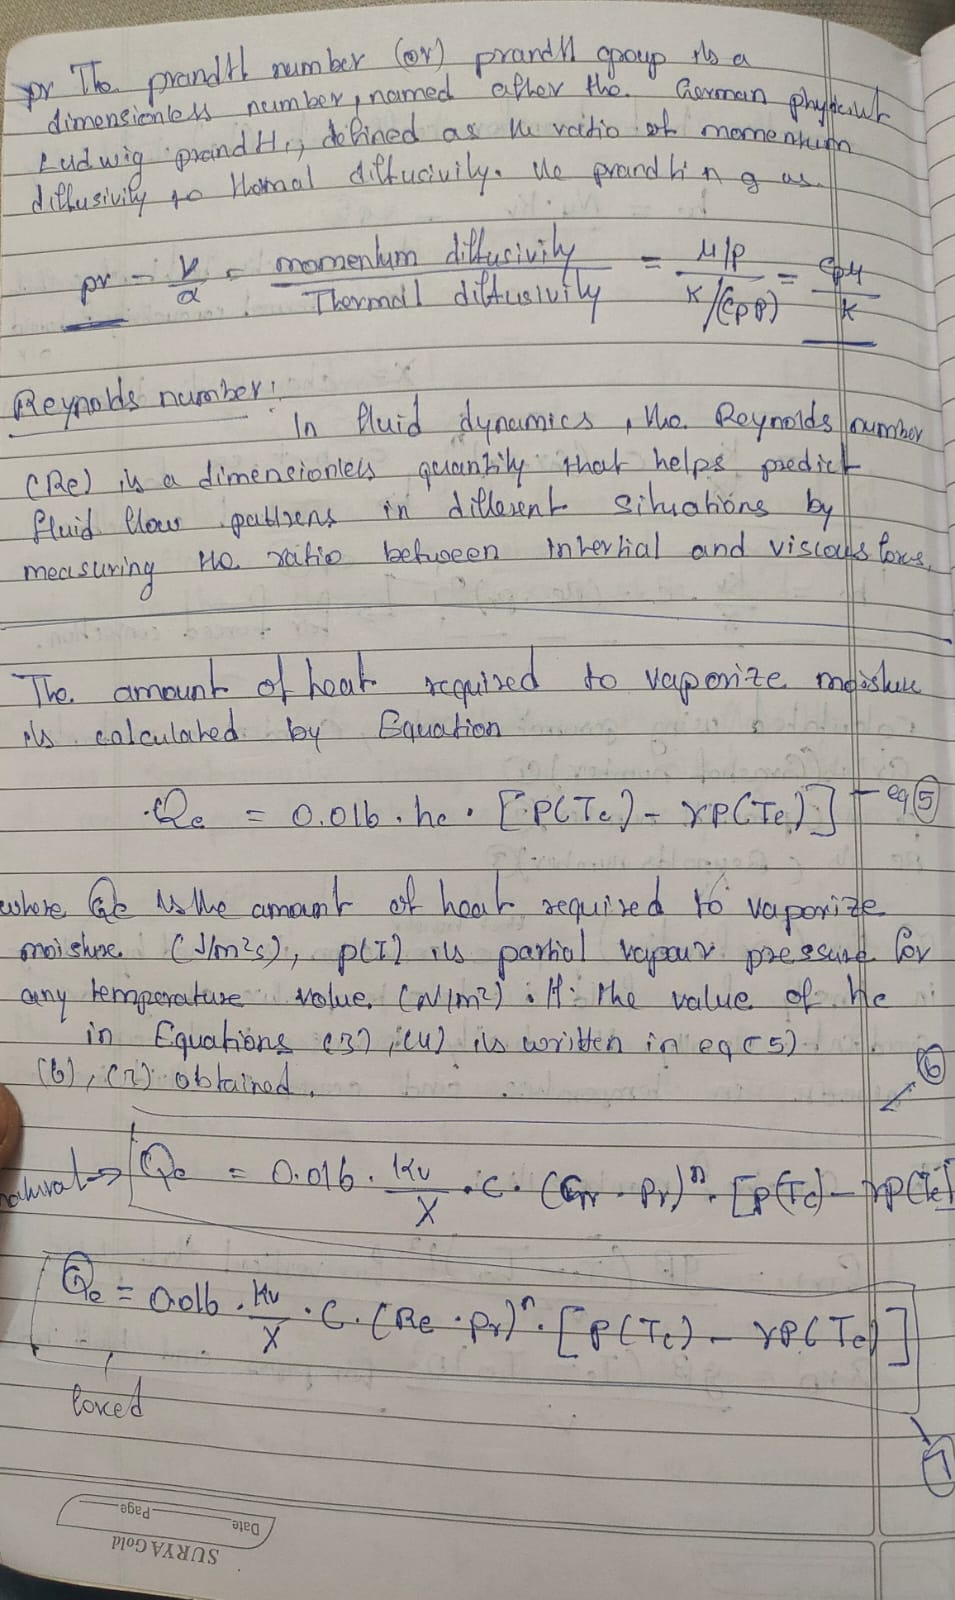 pr The prandtl number (or) prandtl group is a
dimensionless number, named after the German physicist
Ludwig prandtl, defined as the ratio of momentum
diffusivity to thermal diffusivity. The prandtl n g as.
pr = ν/α = momentum diffusivity / Thermall diffusivity = μ/ρ / K/(Cpρ) = Cpμ / k
Reynolds number:
In fluid dynamics, the Reynolds number
(Re) is a dimensionless quantity that helps predict
fluid flow pattrens in different situations by
measuring the ratio between intertial and viscous forces.
The amount of heat required to vaporize moisture
is calculated by Equation
Qe = 0.016 · hc · [P(Tc) - γP(Te)] - eq 5
where Qe is the amount of heat required to vaporize
moisture (J/m²s), p(T) is partial vapour pressure for
any temperature value (N/m²). If the value of hc
in Equations (3), (4) is written in eq (5)
(6), (7) obtained.
6
natural → Qe = 0.016 · Kv/X · C · (Gr · Pr)ⁿ · [P(Tc) - γP(Te)]
Qe = 0.016 · Kv/X · C · (Re · Pr)ⁿ · [P(Tc) - γP(Te)]
forced
7
Date
Page
SURYA Gold